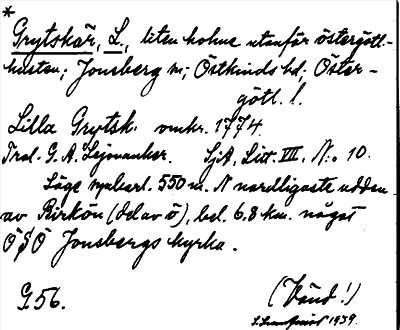 *
Grytskär, L., liten holme utanför östergötl.-
kusten; Jonsberg sn; Östkinds hd; Öster-
götl. l.
Lilla Grytsk. omkr. 1774.
Trol. G. A. Lejonanker. SjA, Litt. VII, N:o 10.
Läge omkr. 550 m. N nordligaste udden
av Birkön (del av ö), bel. 6.8 km. något
ÖSÖ Jonsbergs kyrka.
G. 56. (Vänd!)
1939.